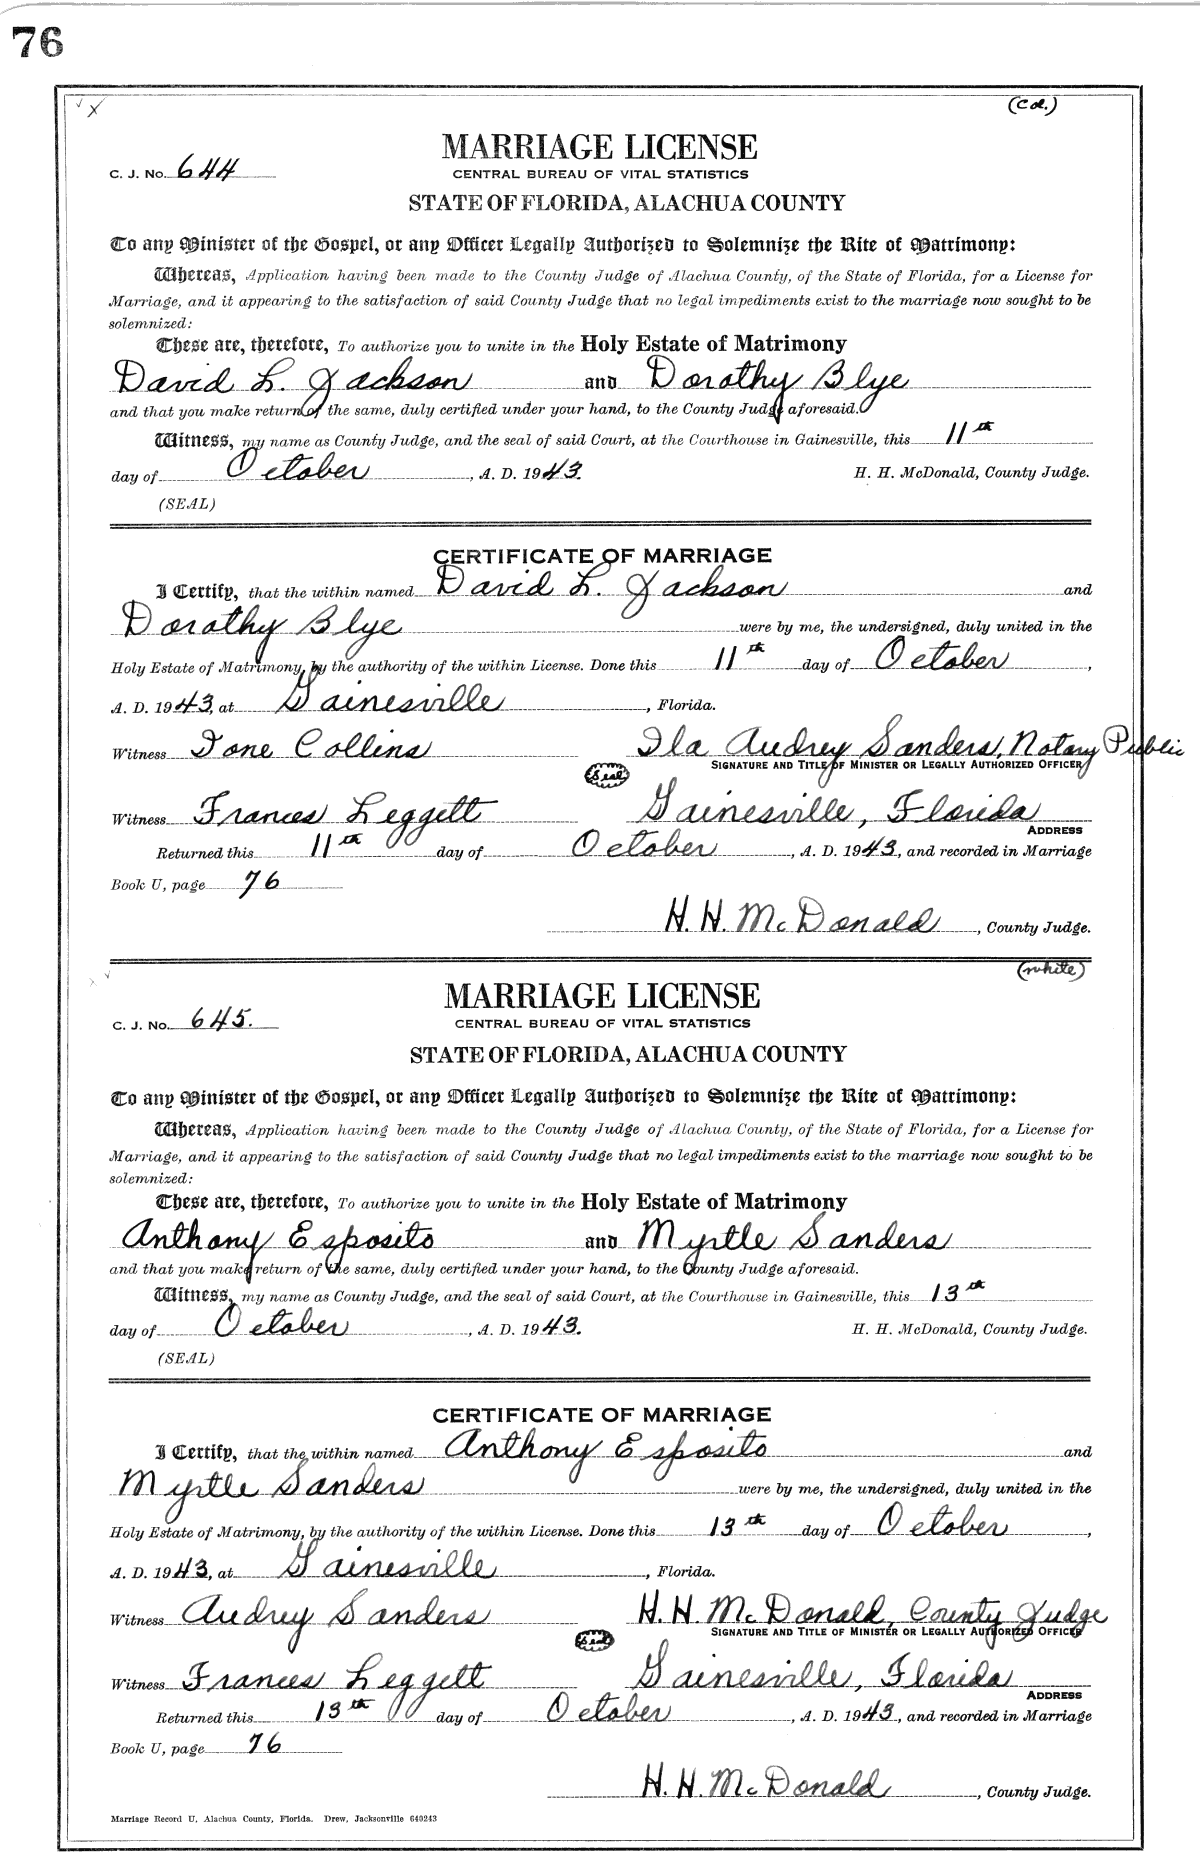 76
(Cd.)
MARRIAGE LICENSE
C. J. No. 644
CENTRAL BUREAU OF VITAL STATISTICS
STATE OF FLORIDA, ALACHUA COUNTY
To any Minister of the Gospel, or any Officer Legally Authorized to Solemnize the Rite of Matrimony:
Whereas, Application having been made to the County Judge of Alachua County, of the State of Florida, for a License for
Marriage, and it appearing to the satisfaction of said County Judge that no legal impediments exist to the marriage now sought to be
solemnized:
These are, therefore, To authorize you to unite in the Holy Estate of Matrimony
David L. Jackson and Dorothy Blye
and that you make return of the same, duly certified under your hand, to the County Judge aforesaid.
Witness, my name as County Judge, and the seal of said Court, at the Courthouse in Gainesville, this 11th
day of October, A. D. 1943. H. H. McDonald, County Judge.
(SEAL)
CERTIFICATE OF MARRIAGE
I Certify, that the within named David L. Jackson and
Dorothy Blye were by me, the undersigned, duly united in the
Holy Estate of Matrimony, by the authority of the within License. Done this 11th day of October,
A. D. 1943, at Gainesville, Florida.
Witness Ione Collins Ila Audrey Sanders, Notary Public
(Seal) SIGNATURE AND TITLE OF MINISTER OR LEGALLY AUTHORIZED OFFICER
Witness Frances Leggett Gainesville, Florida
ADDRESS
Returned this 11th day of October, A. D. 1943, and recorded in Marriage
Book U, page 76
H. H. McDonald, County Judge.
(white)
MARRIAGE LICENSE
C. J. No. 645.
CENTRAL BUREAU OF VITAL STATISTICS
STATE OF FLORIDA, ALACHUA COUNTY
To any Minister of the Gospel, or any Officer Legally Authorized to Solemnize the Rite of Matrimony:
Whereas, Application having been made to the County Judge of Alachua County, of the State of Florida, for a License for
Marriage, and it appearing to the satisfaction of said County Judge that no legal impediments exist to the marriage now sought to be
solemnized:
These are, therefore, To authorize you to unite in the Holy Estate of Matrimony
Anthony Esposito and Myrtle Sanders
and that you make return of the same, duly certified under your hand, to the County Judge aforesaid.
Witness, my name as County Judge, and the seal of said Court, at the Courthouse in Gainesville, this 13th
day of October, A. D. 1943. H. H. McDonald, County Judge.
(SEAL)
CERTIFICATE OF MARRIAGE
I Certify, that the within named Anthony Esposito and
Myrtle Sanders were by me, the undersigned, duly united in the
Holy Estate of Matrimony, by the authority of the within License. Done this 13th day of October,
A. D. 1943, at Gainesville, Florida.
Witness Audrey Sanders H. H. McDonald, County Judge
(Seal) SIGNATURE AND TITLE OF MINISTER OR LEGALLY AUTHORIZED OFFICER
Witness Frances Leggett Gainesville, Florida
ADDRESS
Returned this 13th day of October, A. D. 1943, and recorded in Marriage
Book U, page 76
H. H. McDonald, County Judge.
Marriage Record U, Alachua County, Florida. Drew, Jacksonville 640243